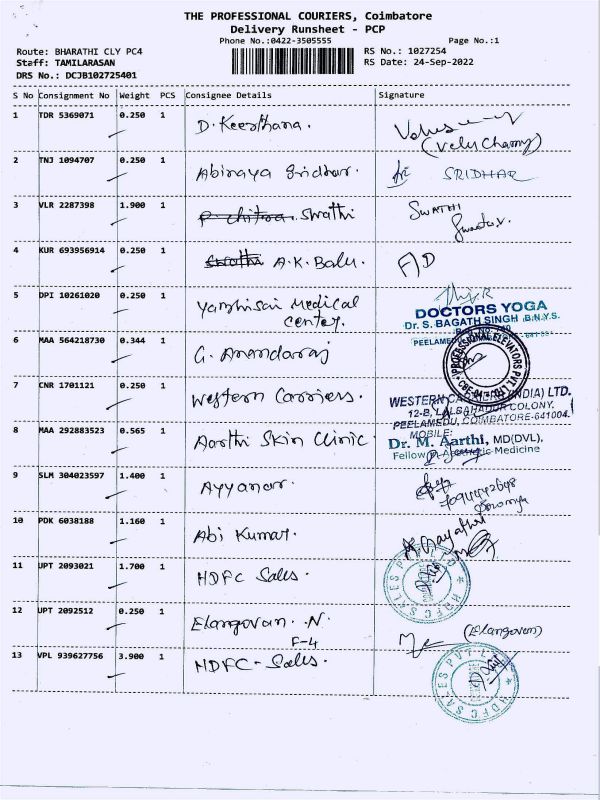 THE PROFESSIONAL COURIERS, Coimbatore
Delivery Runsheet - PCP
Phone No.:0422-3505555
Page No.:1
Route: BHARATHI CLY PC4
RS No.: 1027254
Staff: TAMILARASAN
RS Date: 24-Sep-2022
DRS No.: DCJB102725401
S No Consignment No Weight PCS Consignee Details Signature
1 TDR 5369071 0.250 1 D. Keerthana.
(Velu Chamy)
2 TNJ 1094707 0.250 1 Abinaya Sridhar. SRIDHAR
3 VLR 2287398 1.900 1 P. chitra. Swathi SWATHI
4 KUR 693956914 0.250 1 Swathi A.K. Balu. F/D
5 DPI 10261020 0.250 1 Yazhisai Medical
center.
DOCTORS YOGA
Dr. S. BAGATH SINGH B.N.Y.S.
6 MAA 564218730 0.344 1 G. Anandaraj
PROFESSIONAL ELEVATORS PVT. LTD.
CBE-04
7 CNR 1701121 0.250 1 Western Carriers.
WESTERN CARRIERS (INDIA) LTD.
12-B, LALBAHADUR COLONY,
PEELAMEDU, COIMBATORE-641004.
MOBILE:
8 MAA 292883523 0.565 1 Aarthi Skin Clinic.
Dr. M. Aarthi, MD(DVL),
Fellow in Aesthetic Medicine
9 SLM 304023597 1.400 1 Ayyanar.
10 PDK 6038188 1.160 1 Abi Kumar. A. Gayathri
11 UPT 2093021 1.700 1 HDFC Sales.
HDFC SALES PVT LTD
12 UPT 2092512 0.250 1 Elangovan. N. (Elangovan)
F-4
13 VPL 939627756 3.900 1 HDFC - Sales.
HDFC SALES PVT LTD